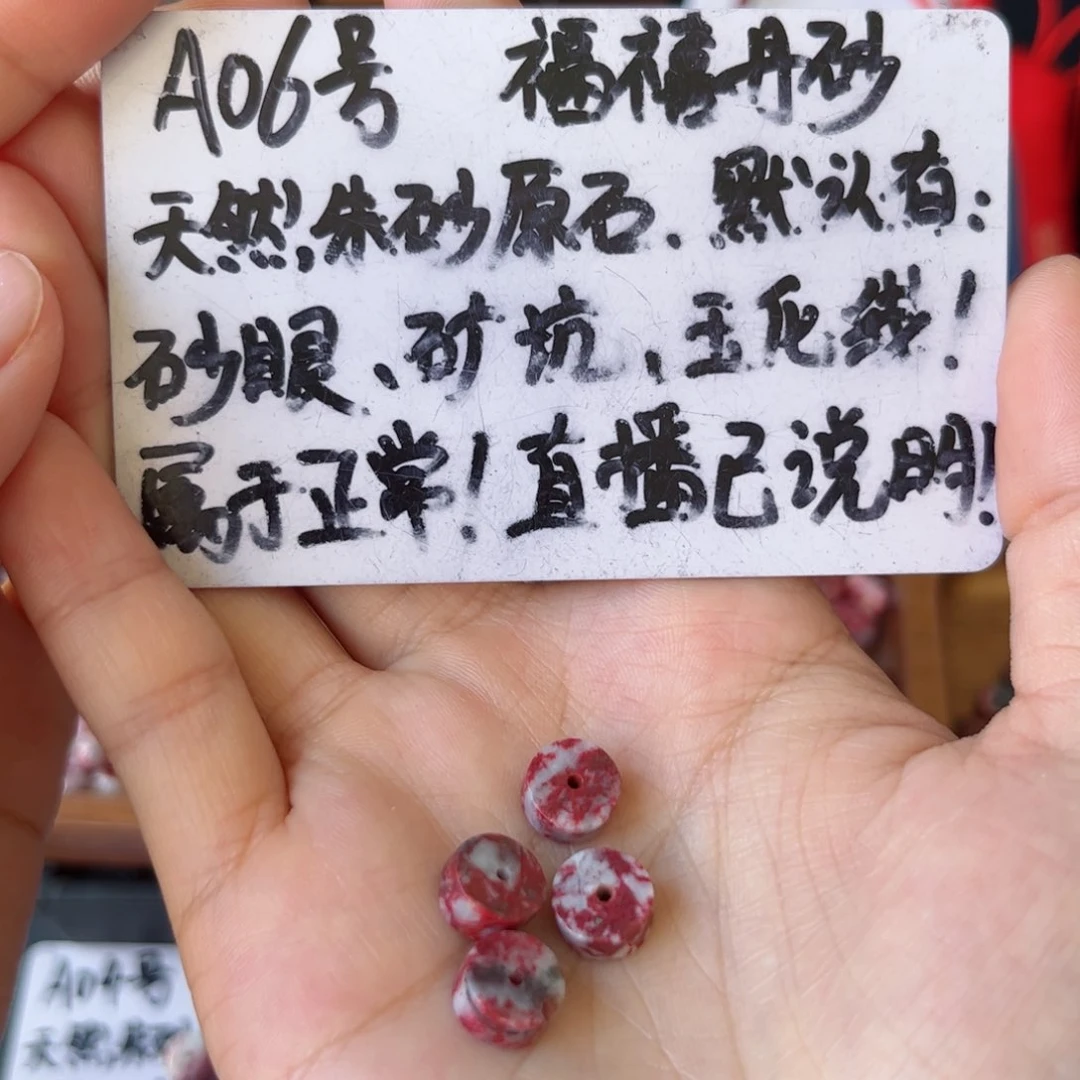 A06号 福禧丹砂
天然朱砂原石.默认有:
砂眼、矿坑、玉化线!
属于正常!直播已说明!
A04号
天然朱